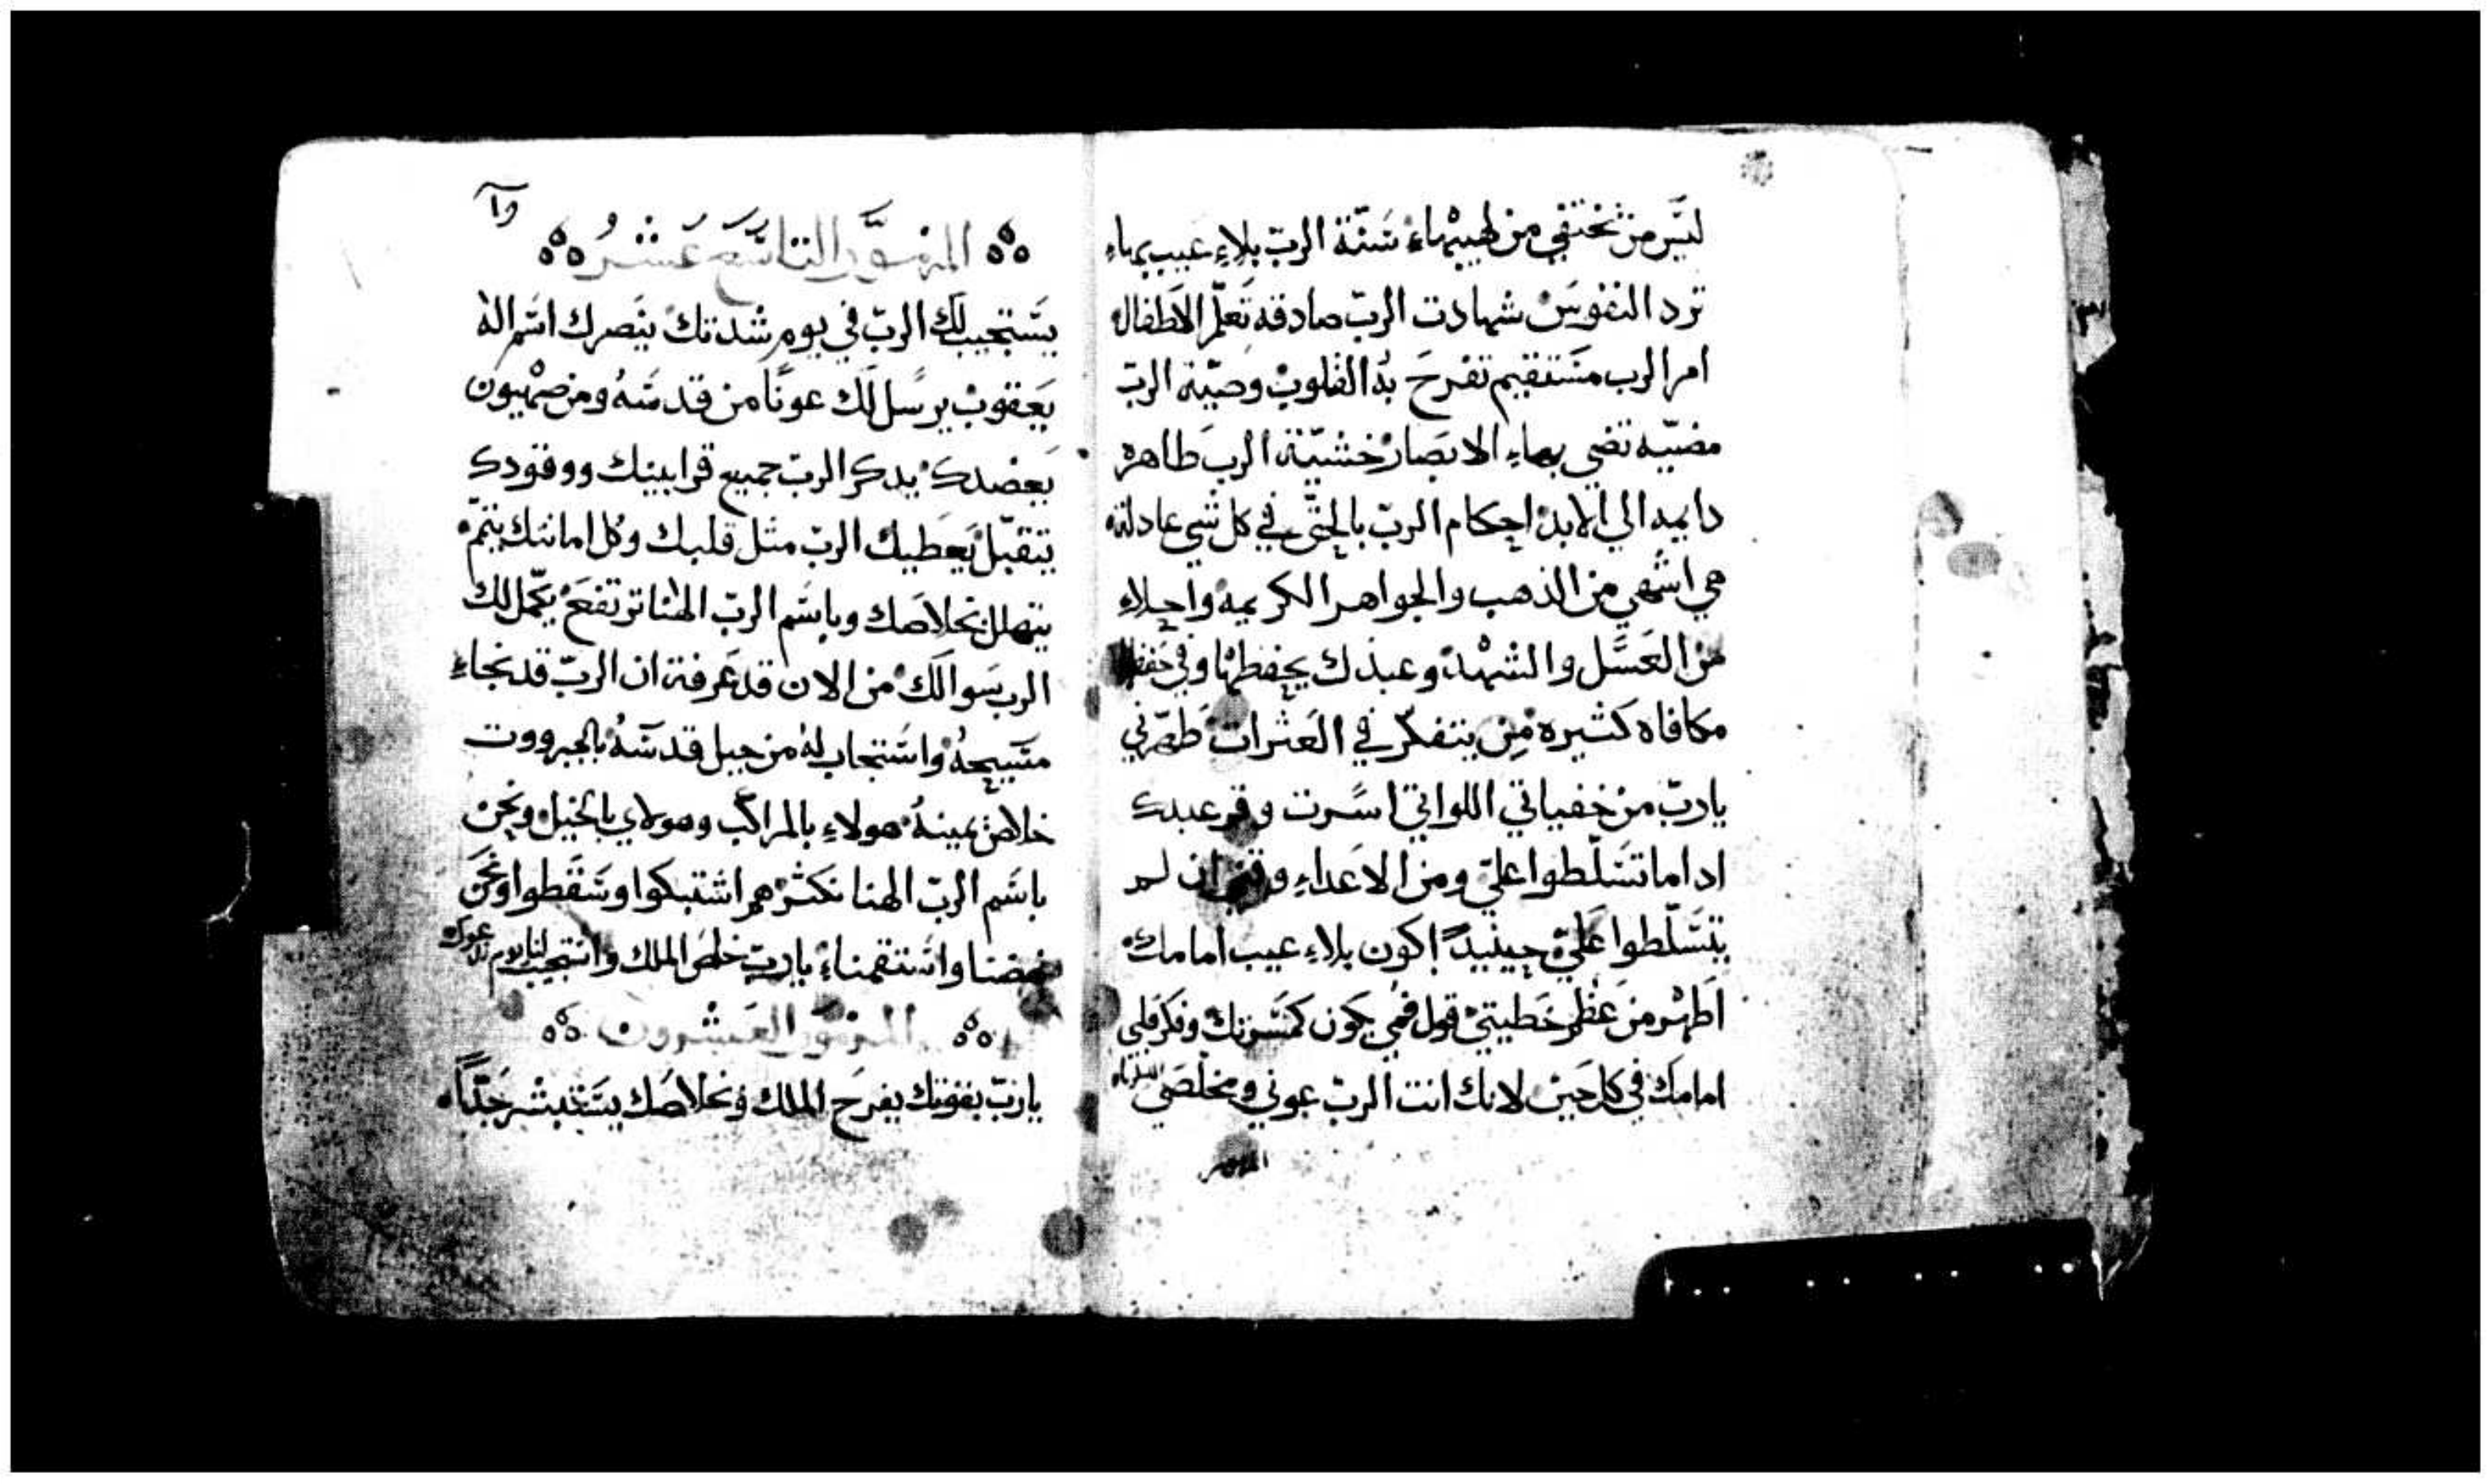 ليس من يختفي من لهيبهاء سنة الرب بلاء عيب بهاء
ترد النفوس شهادت الرب صادقه تعلم الاطفال
امر الرب مستقيم تفرح به القلوب وصية الرب
مضيّه تضي بهاء الابصار خشية الرب طاهره
دايمه الي الابد احكام الرب بالحق في كل شي عادلته
هي اشهي من الذهب والجواهر الكريمه واحلاء
من العسل والشهد وعبدك يحفظها وفي حفظها
مكافاه كثيره من يتفكر في العثرات طهرني
يارب من خفياتي اللواتي اسرت وقر عبدك
اداما تسلطوا علي ومن الاعداء ان لم
يتسلطوا علي حينيد اكون بلاء عيب امامك
اطهر من عظم خطيتي قول فمي يكون كمسرتك وفكر قلبي
امامك في كل حين لانك انت الرب عوني ومخلصي
المزمور التاسع عشر
يستجيب لك الرب في يوم شدتك ينصرك اسم اله
يعقوب يرسل لك عونا من قدسه ومن صهيون
يعضدك يدكر الرب جميع قرابينك ووقودك
يتقبل يعطيك الرب مثل قلبك وكل امانتك يتم
يتهلل بخلاصك وباسم الرب الهنا ترتفع يكمل لك
الرب سوالك من الان قد عرفة ان الرب قد نجاء
مسيحه واستجاب له من جبل قدسه بالجبرووت
خلاص يمينه هولاء بالمراكب وهولاي بالخيل ونحن
باسم الرب الهنا نكثر هم اشتبكوا وسقطوا ونحن
نهضنا واستقمناء يارب خلص الملك واستجيب لنا يوم ندعوك
المزمور العشرون
يارب بقوتك يفرح الملك وبخلاصك يستبشر جدًّا